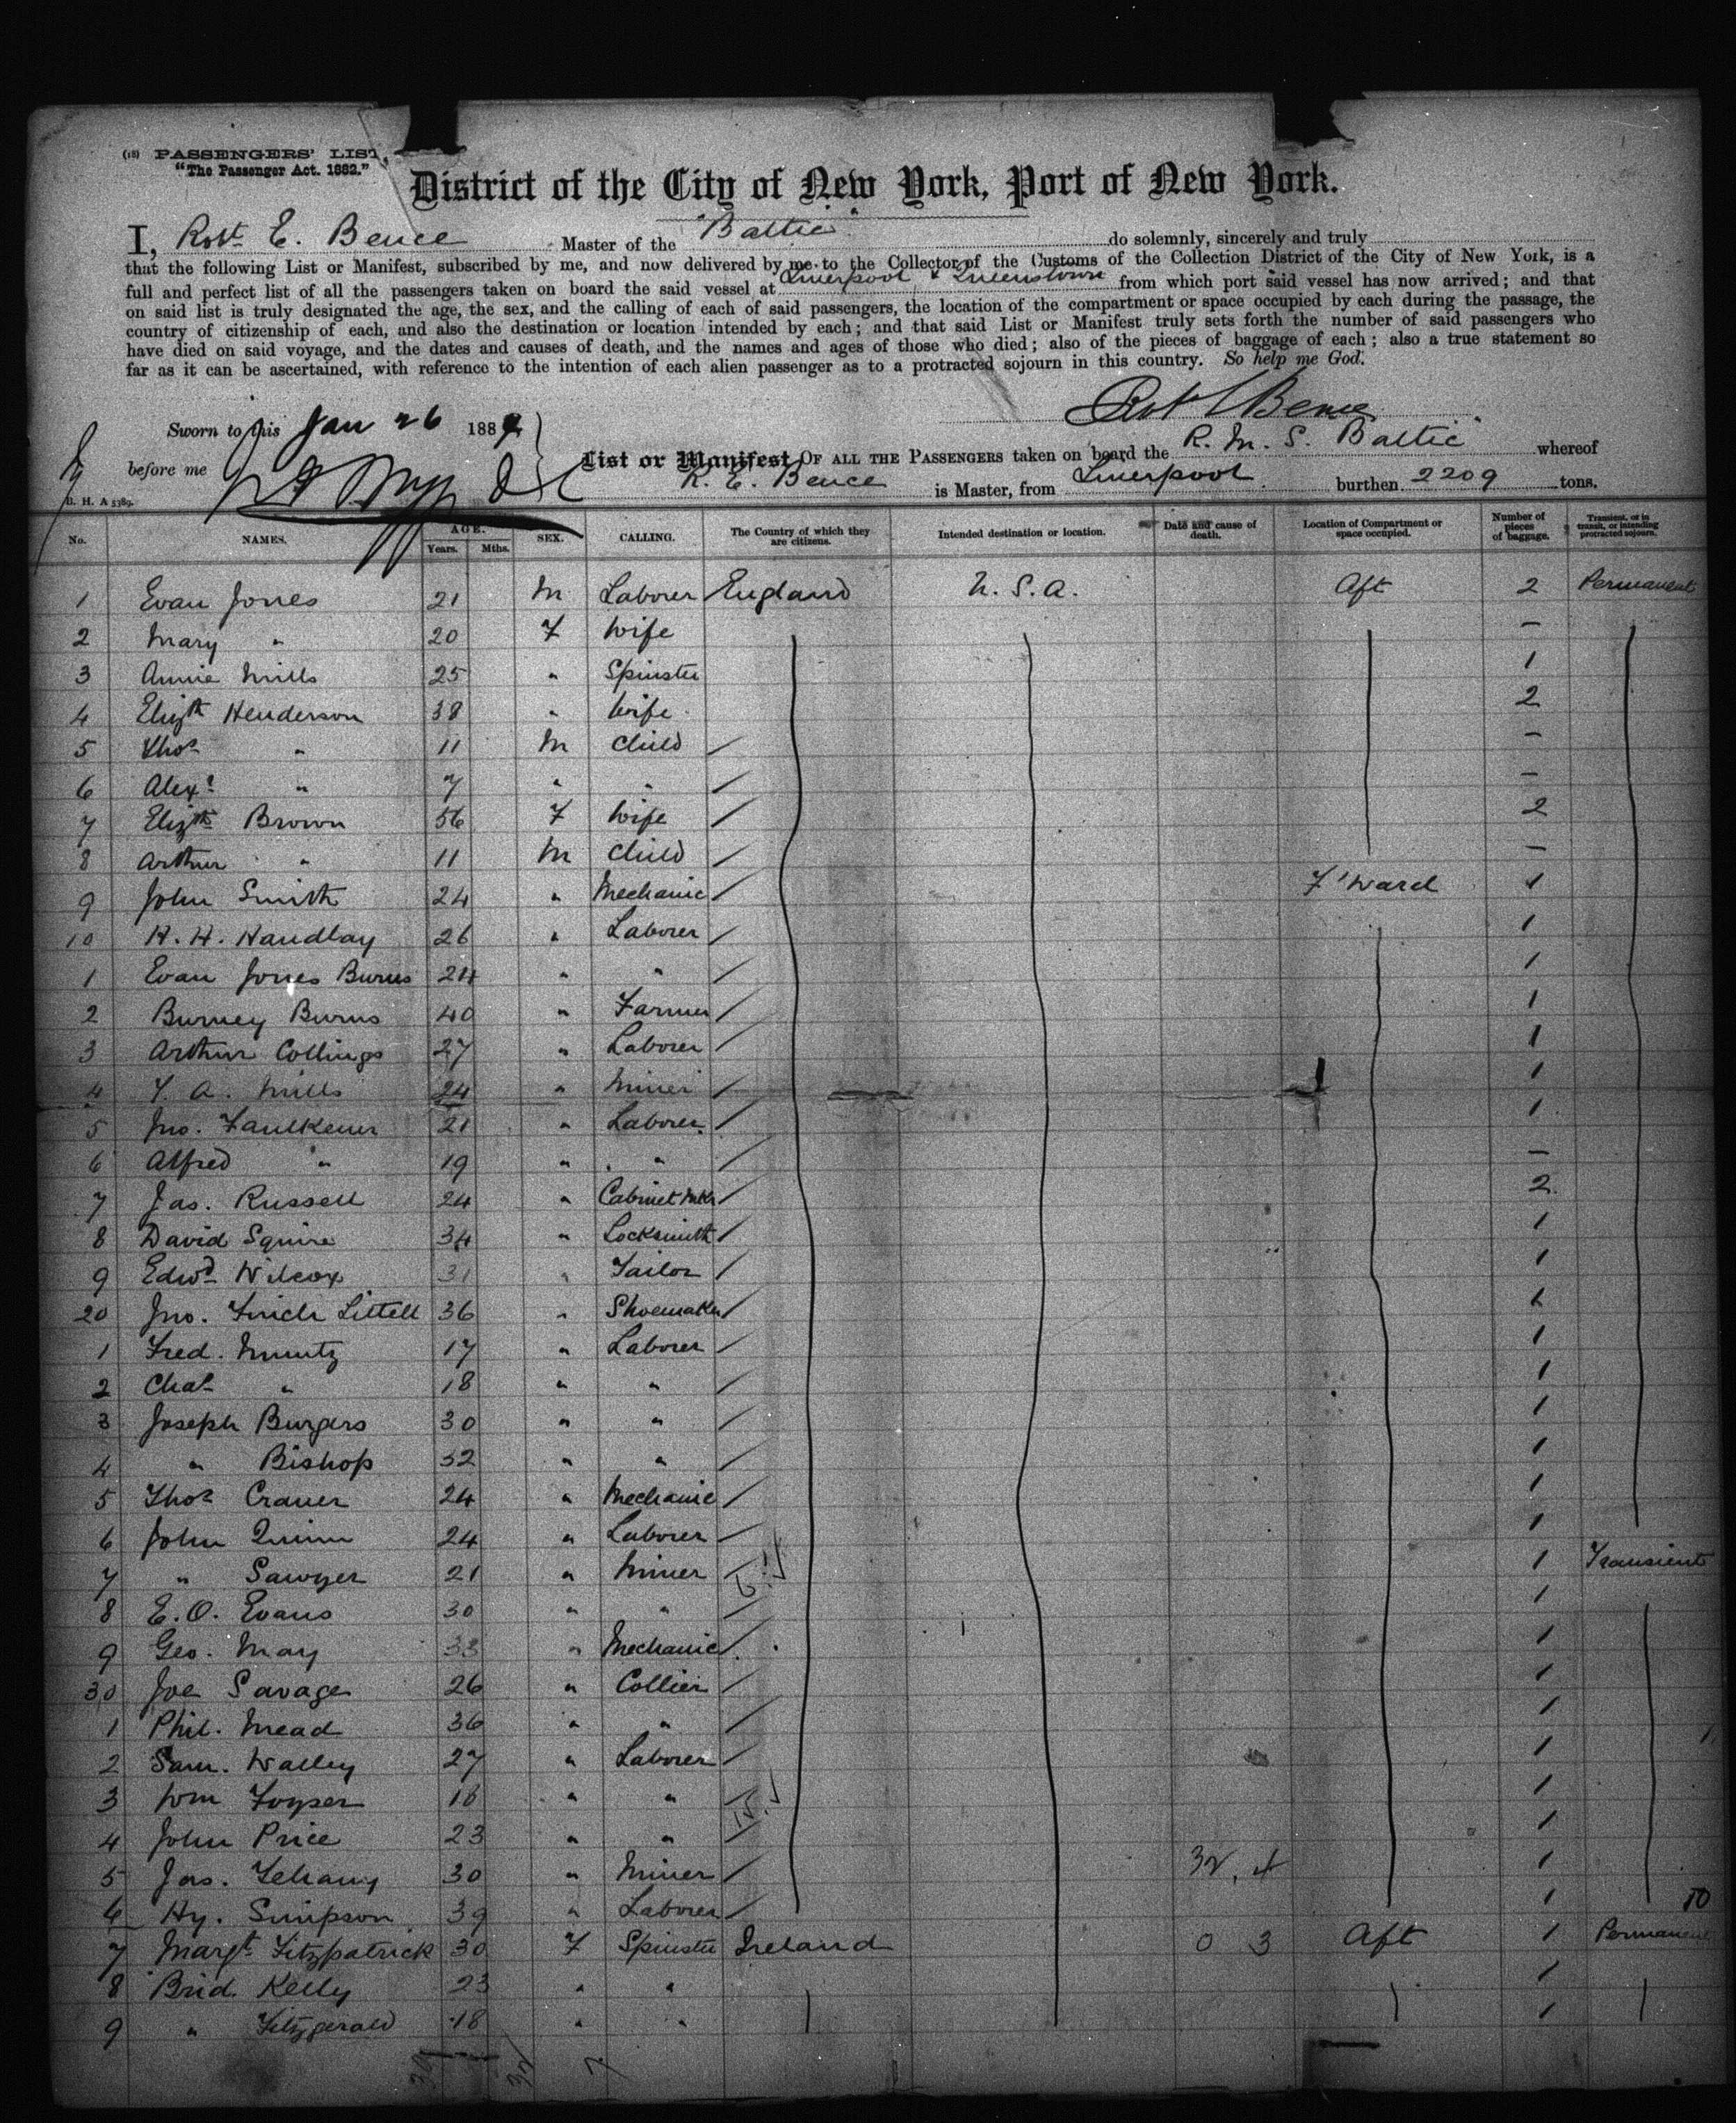 (18) PASSENGERS' LIST,
"The Passenger Act. 1882."
District of the City of New York, Port of New York.
I, Robt E. Bence Master of the "Baltic" do solemnly, sincerely and truly
that the following List or Manifest, subscribed by me, and now delivered by me to the Collector of the Customs of the Collection District of the City of New York, is a
full and perfect list of all the passengers taken on board the said vessel at Liverpool & Queenstown from which port said vessel has now arrived; and that
on said list is truly designated the age, the sex, and the calling of each of said passengers, the location of the compartment or space occupied by each during the passage, the
country of citizenship of each, and also the destination or location intended by each; and that said List or Manifest truly sets forth the number of said passengers who
have died on said voyage, and the dates and causes of death, and the names and ages of those who died; also of the pieces of baggage of each; also a true statement so
far as it can be ascertained, with reference to the intention of each alien passenger as to a protracted sojourn in this country. So help me God.
Robt E Bence
Sworn to this Jan 26 188
before me
List or Manifest OF ALL THE PASSENGERS taken on board the R. M. S. Baltic whereof
R. E. Bence is Master, from Liverpool burthen 2209 tons.
B. H. A 5389.
No. NAMES. AGE. Years. Mths. SEX. CALLING. The Country of which they are citizens. Intended destination or location. Date and cause of death. Location of Compartment or space occupied. Number of pieces of baggage. Transient, or in transit, or intending protracted sojourn.
1 Evan Jones 21 M Laborer England U. S. A. Aft 2 Permanent
2 Mary " 20 F Wife —
3 Annie Mills 25 " Spinster 1
4 Elizth Henderson 38 " Wife 2
5 Thos " 11 M Child —
6 Alexr " 7 " " —
7 Elizth Brown 56 F Wife 2
8 Arthur " 11 M Child —
9 John Smith 24 " Mechanic F'ward 1
10 H. H. Handlay 26 " Laborer 1
1 Evan Jones Burns 24 " " 1
2 Burney Burns 40 " Farmer 1
3 Arthur Collings 27 " Laborer 1
4 T. A. Mills 24 " Miner 1
5 Jno. Faulkener 21 " Laborer 1
6 Alfred " 19 " " —
7 Jas. Russell 24 " Cabinet Mkr 2
8 David Squire 34 " Locksmith 1
9 Edwd Wilcox 31 " Tailor 1
20 Jno. Finch Littell 36 " Shoemaker
1 Fred. 17 " Laborer 1
2 Chas " 18 " " 1
3 Joseph Burgess 30 " " 1
4 " Bishop 32 " " 1
5 Thos Craner 24 " Mechanic 1
6 John Quinn 24 " Laborer 1
7 " Sawyer 21 " Miner 1 Transient
8 E. O. Evans 30 " " 1
9 Geo. May 33 " Mechanic 1
30 Joe Savage 26 " Collier 1
1 Phil. Mead 36 " " 1
2 Sam. Walley 27 " Laborer 1
3 Wm 18 " " 1
4 John Price 23 " " 1
5 Jas. 30 " Miner 1
6 Hy. Simpson 39 " Laborer 1 10
7 Margt Fitzpatrick 30 F Spinster Ireland 0 3 Aft 1 Permanent
8 Brid. Kelly 23 " " 1
9 " Fitzgerald 18 " " 1